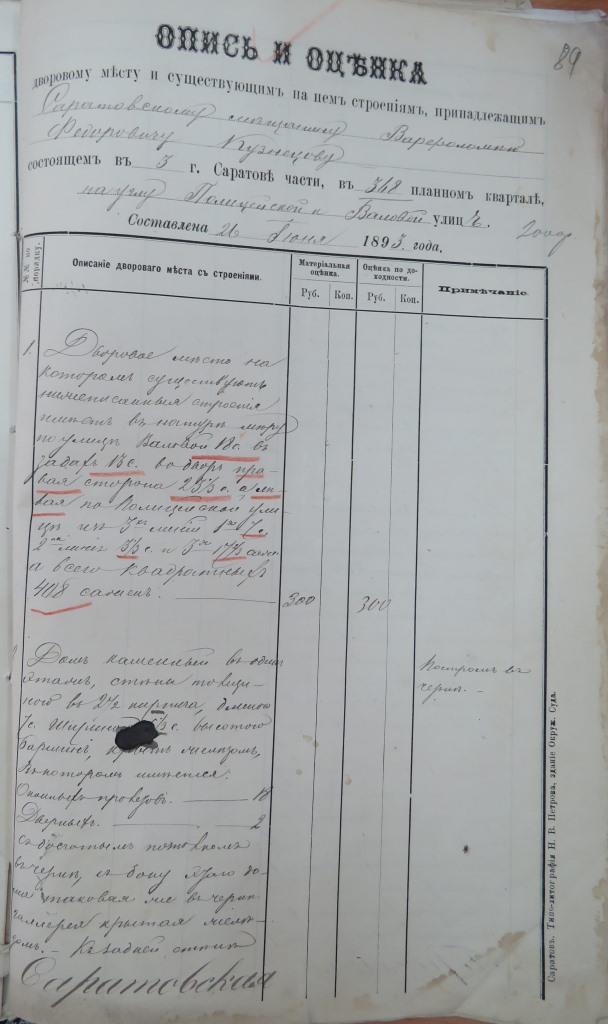 89
ОПИСЬ И ОЦѢНКА
дворовому мѣсту и существующимъ на немъ строеніямъ, принадлежащимъ
Саратовскому мѣщанину Варфоломею
Федоровичу Кузнецову
состоящемъ въ 3 г. Саратовѣ части, въ 368 планномъ кварталѣ,
на углу Полицейской и Валовой улицъ.
Составлена 26 Іюня 1893 года.
№№ по порядку.
Описаніе двороваго мѣста съ строеніями.
Матеріальная оцѣнка.
Оцѣнка по доходности.
Примѣчаніе.
Руб. Коп. Руб. Коп.
1. Дворовое мѣсто на
которомъ существуютъ
нижеписанныя строенія
имѣетъ въ натурѣ мѣру
по улицѣ Валовой 18 с. въ
задахъ 13 с. во дворъ пра-
вая сторона 25⅓ с. а лѣ-
вая по Полицейской ули-
цѣ
а всего квадратныхъ
408 сажень. 300 300
Домъ каменный въ одинъ
этажъ, стѣны толщи-
ною въ 2½ кирпича, длиною
7 с. шириною высотою
крытъ желѣзомъ,
въ которомъ имѣется:
Оконныхъ проемовъ. 18
Дверныхъ. 2
съ боку этого до-
ма таковая же въ черн
галлерея крытая желѣ-
зомъ. Къ задней стѣнѣ
Саратовская
Саратовъ. Типо-литографія Н. В. Петрова, зданіе Окруж. Суда.